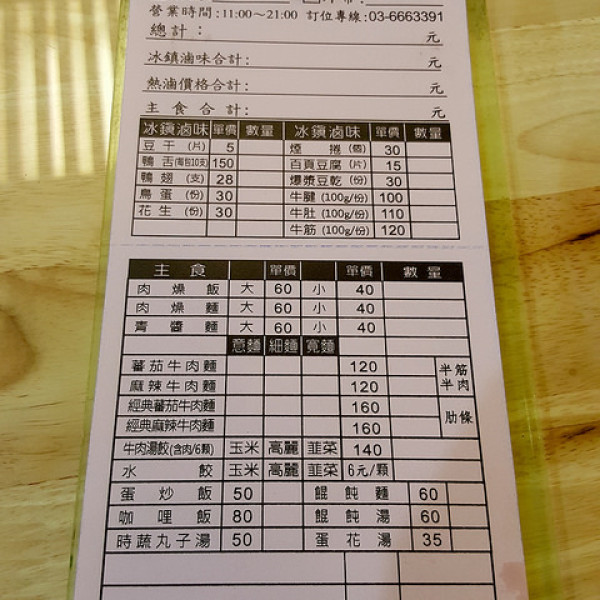 營業時間:11:00~21:00 訂位專線:03-6663391
總計: 元
冰鎮滷味合計: 元
熱滷價格合計: 元
主食合計: 元
冰鎮滷味 單價 數量 冰鎮滷味 單價 數量
豆干(片) 5 煙捲(個) 30
鴨舌(每包10支) 150 百頁豆腐(片) 15
鴨翅(支) 28 爆漿豆乾(份) 30
鳥蛋(份) 30 牛腱(100g/份) 100
花生(份) 30 牛肚(100g/份) 110
牛筋(100g/份) 120
主食 單價 單價 數量
肉燥飯 大 60 小 40
肉燥麵 大 60 小 40
青醬麵 大 60 小 40
意麵 細麵 寬麵
蕃茄牛肉麵 120 半筋
麻辣牛肉麵 120 半肉
經典蕃茄牛肉麵 160 肋條
經典麻辣牛肉麵 160
牛肉湯餃(含肉/6顆) 玉米 高麗 韮菜 140
水餃 玉米 高麗 韮菜 6元/顆
蛋炒飯 50 餛飩麵 60
咖哩飯 80 餛飩湯 60
時蔬丸子湯 50 蛋花湯 35